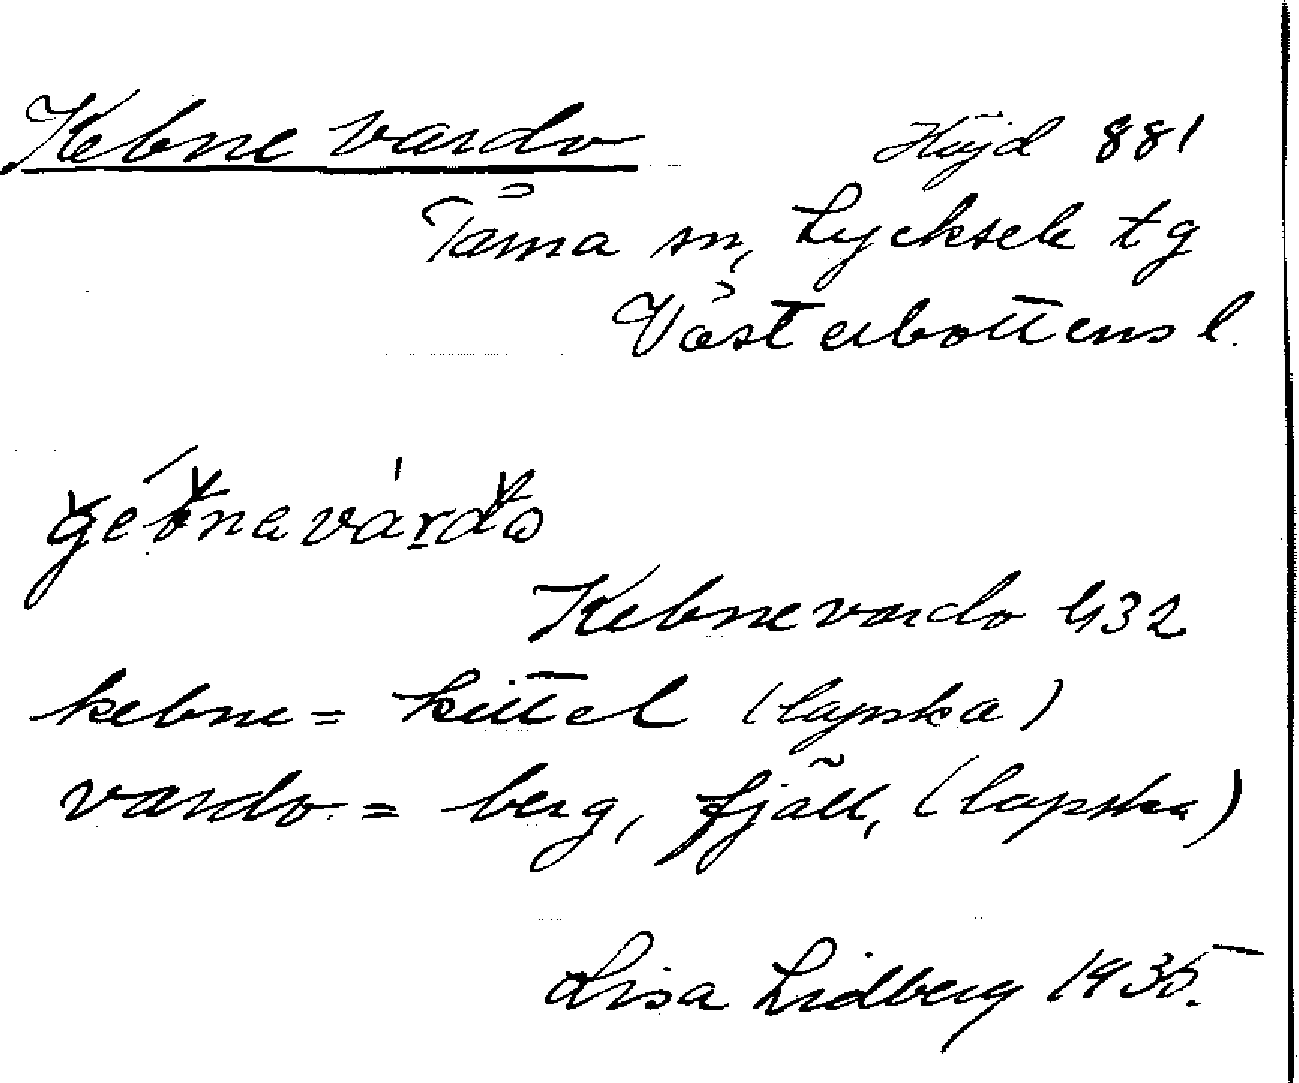 Kebne vardo Höjd 881
Tärna sn, Lycksele tg
Västerbottens l.
Kebnevardo G32
kebne = kittel (lapska)
vardo = berg, fjäll, (lapska)
Lisa Lidberg 1935.